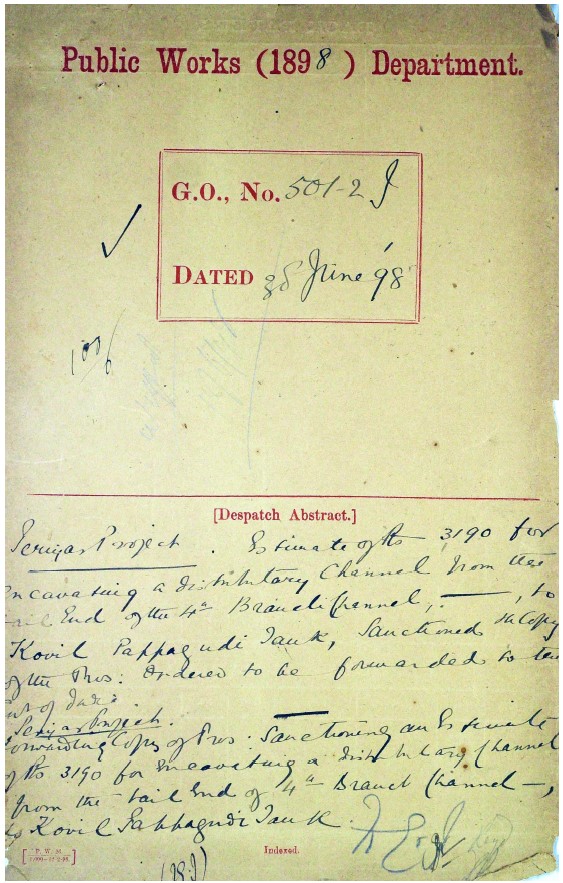 Public Works (1898) Department.
G.O., No. 501-2 I
DATED June '98
100/6
[Despatch Abstract.]
Periyar Project. Estimate of Rs 3190 for
Excavating a distributary Channel from the
tail End of the 4th Branch Channel, —, to
Kovil Pappagudi Tank, Sanctioned & Copy
of the Pros: Ordered to be forwarded to the
of
Periyar Project.
Forwarding Copy of Pros. Sanctioning an Estimate
of Rs 3190 for Excavating a distributary Channel
from the tail End of 4th Branch Channel —,
to Kovil Pappagudi Tank.
P. W. S.
Indexed.